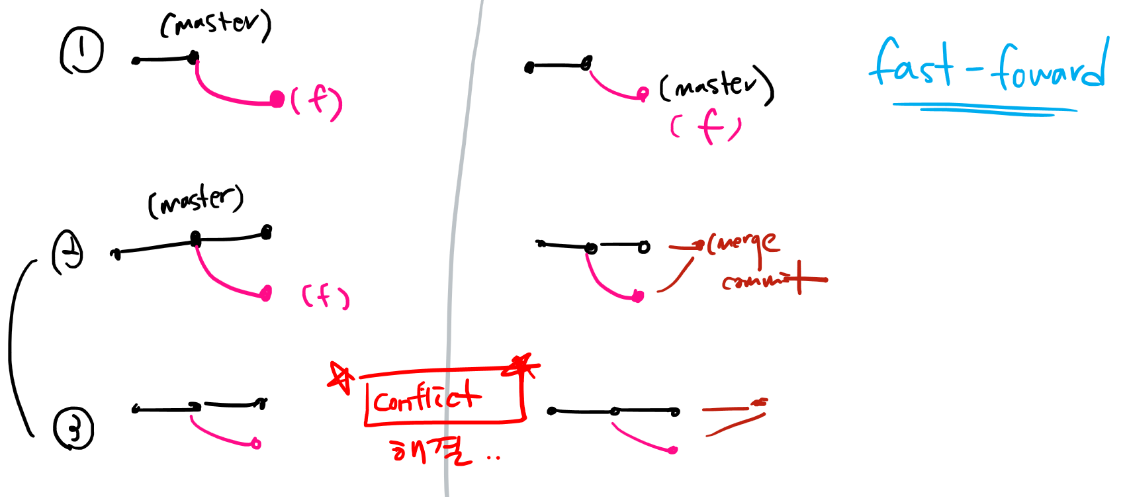 ① (master) (f)
(master) (f)
fast-foward
② (master) (f)
(merge
commit
③
conflict
해결 ..